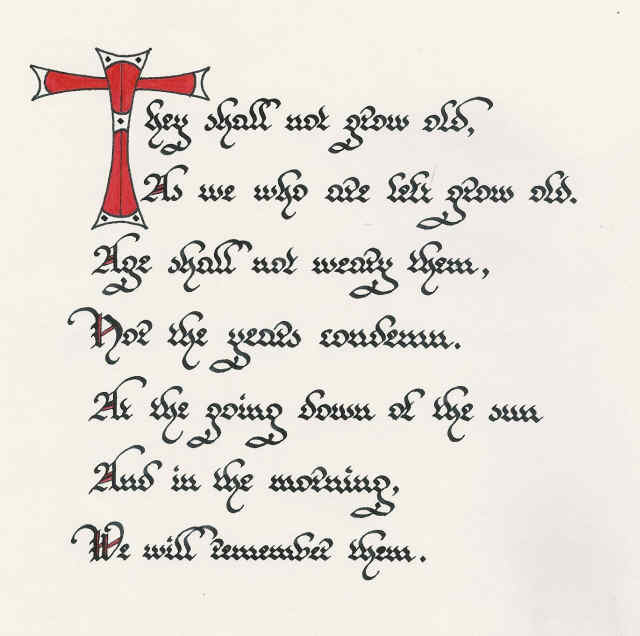 They shall not grow old,
As we who are left grow old.
Age shall not weary them,
Nor the years condemn.
At the going down of the sun
And in the morning,
We will remember them.